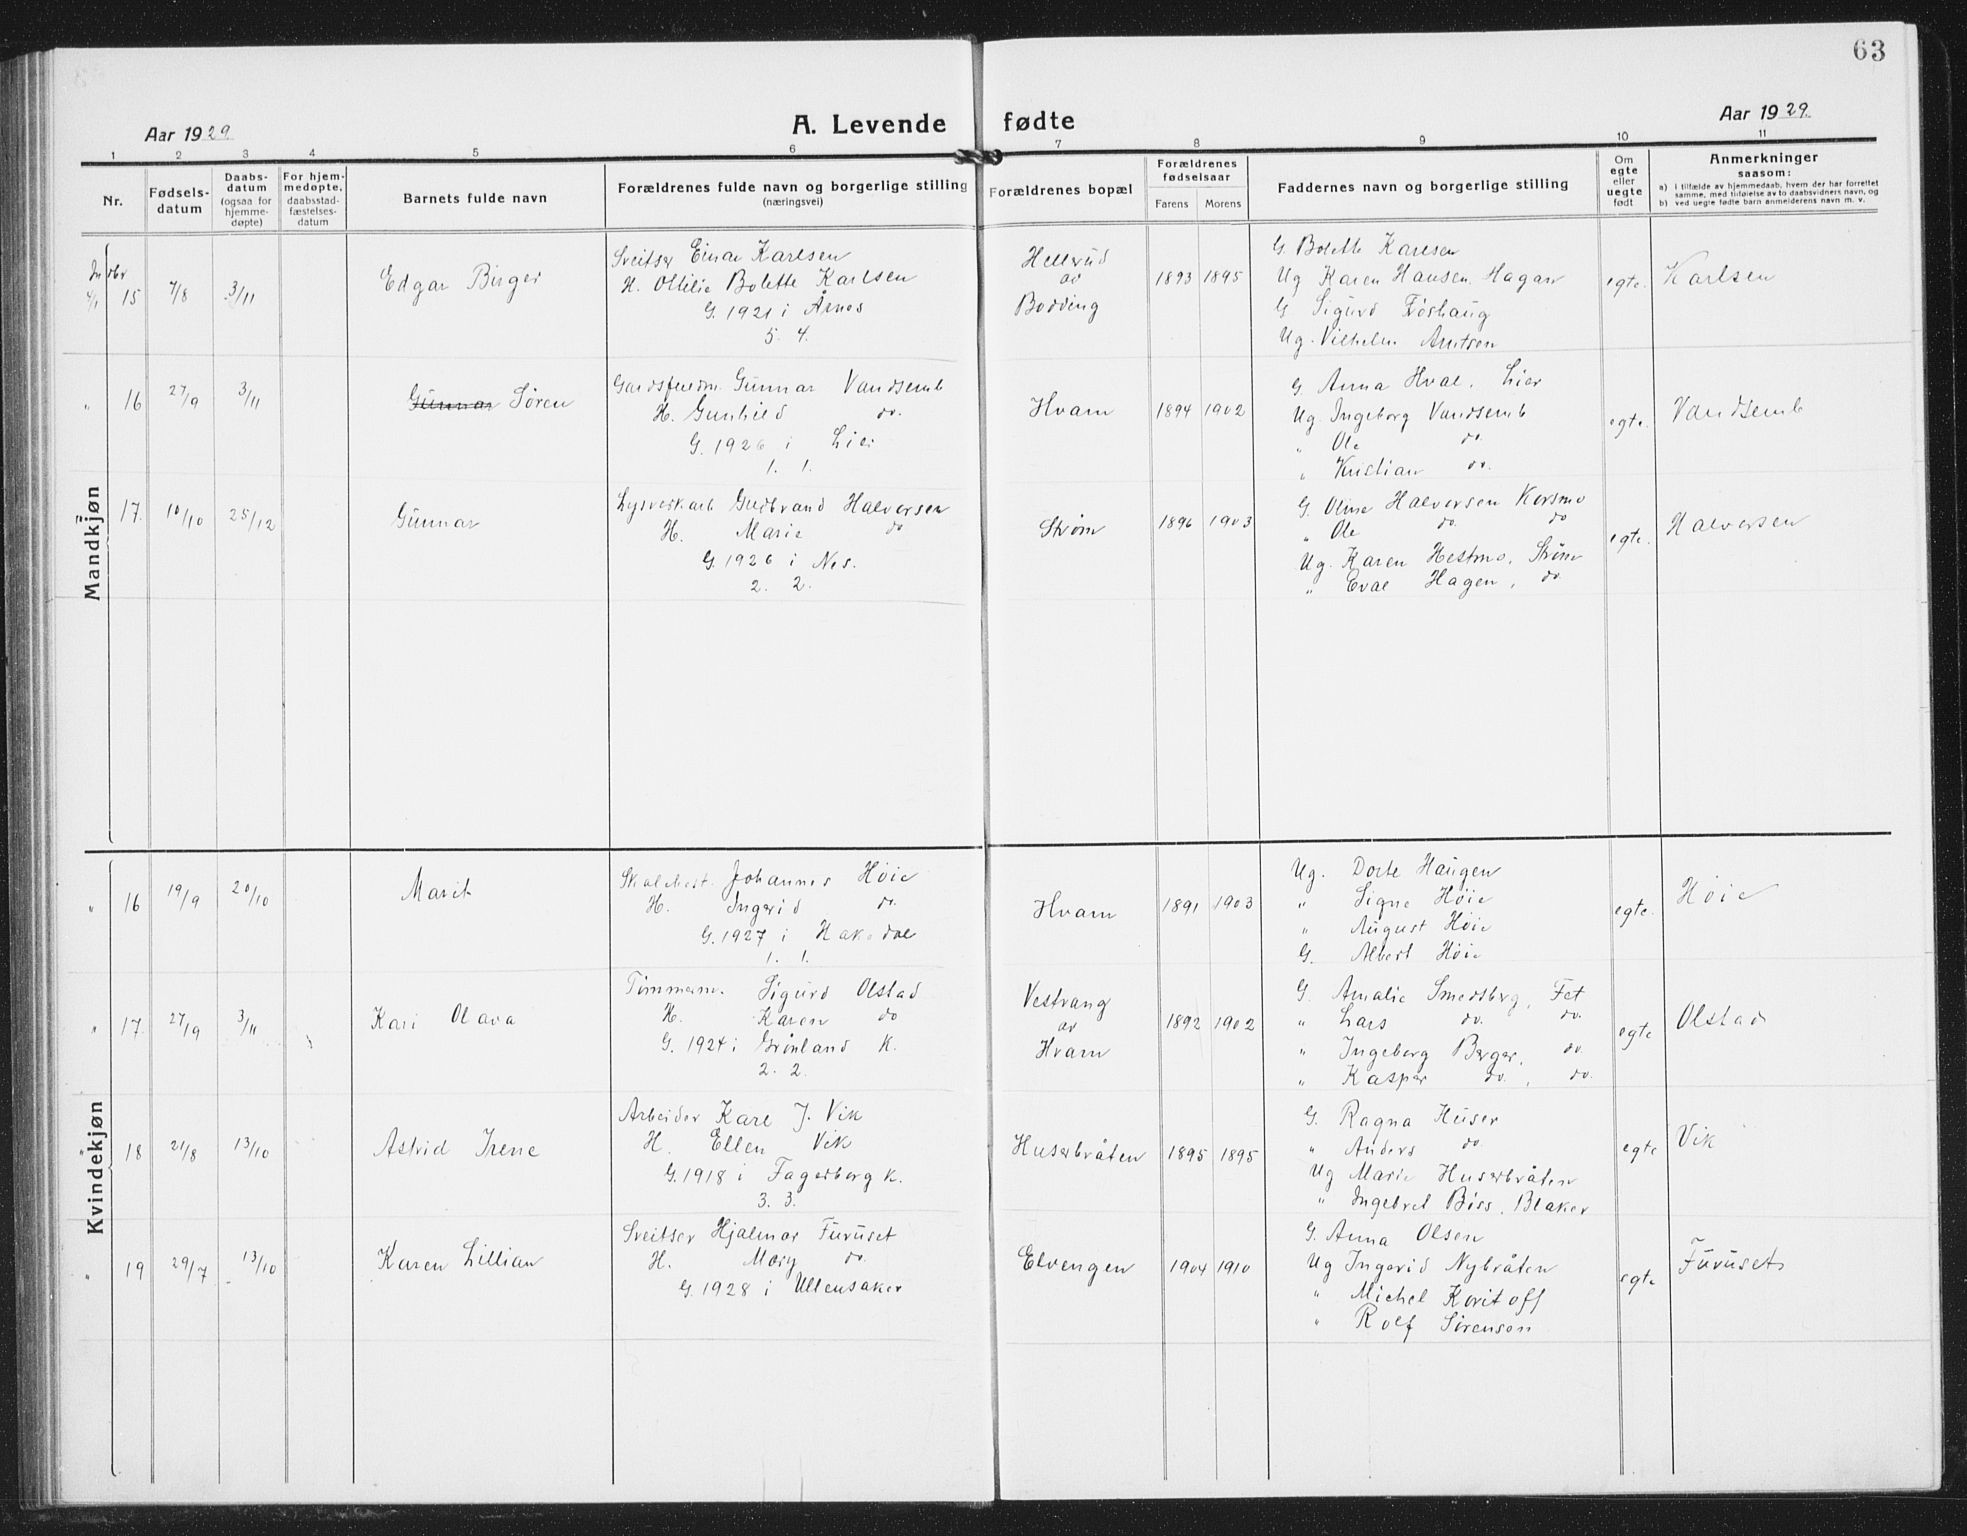 63
Aar 1929.
A. Levende fødte
Aar 1929.
1 2 3 4 5 6 7 8 9 10 11
Nr.
Fødsels-
datum
Daabs-
datum
(ogsaa for
hjemme-
døpte)
For hjem-
medøpte,
daabsstad-
fæstelses-
datum
Barnets fulde navn
Forældrenes fulde navn og borgerlige stilling
(næringsvei)
Forældrenes bopæl
Forældrenes
fødselsaar
Farens Morens
Faddernes navn og borgerlige stilling
Om
egte
eller
uegte
født
Anmerkninger
saasom:
a) i tilfælde av hjemmedaab, hvem der har forrettet
samme, med tilføielse av to daabsvidners navn, og
b) ved uegte fødte barn anmelderens navn m. v.
Mandkjøn
15 7/8 3/11 Edgar Birger
Sveitser Einar Karlsen
H. Ottilie Bolette Karlsen
G. 1921 i Årnes
5. 4.
Hellerud
av
Bodding
1893 1895
G. Bolette Karlsen
Ug Karen Hansen Hagan
G Sigurd Frøshaug
Ug. Vilhelm Arntsen
egte. Karlsen
" 16 27/9 3/11 Gunnar Søren
Gunnar Vandsemb
H. Gunhild do.
G. 1926 i Lier
1. 1.
Hvam
1894 1902
G. Anna Hval, Lier
Ug. Ingeborg Vandsemb
" Ole do.
" Kristian do.
egte. Vandsemb
" 17. 10/10 25/12 Gunnar
Lysverkarb Gudbrand Halvorsen
H. Marie do
G. 1926 i Nes.
2. 2.
Strøm
1896 1903
G. Oline Halvorsen Korsmo
" Ole do. do
Ug. Karen Hestmo, Strøm
" Hagen, do.
egte. Halvorsen
Kvindekjøn
" 16 19/9 20/10 Marit
Johannes Høie
H. Ingerid do.
G. 1927 i Hakadal
1. 1.
Hvam
1891 1903
Ug. Dorte Haugen
" Signe Høie
" August Høie
G. Albert Høie
egte. Høie
" 17. 27/9 3/11 Kari Olava
Tømmerm. Sigurd Olstad
H. Karen do
G. 1924 i Grønland K.
2. 2.
Vestvang
av
Hvam
1892 1902
G. Amalie Smedsberg, Fet
" Lars do. do.
" Ingeborg Berger, do.
" Kasper do., do.
egte Olstad
" 18 21/8 13/10 Astrid Irene
Arbeider Karl J. Vik
H. Ellen Vik
G. 1918 i Fagerborg K.
3. 3.
Huserbråten
1895 1895
G. Ragna Huser
" Anders do.
Ug Marie Huserbråten
" Ingebret Bøss, Blaker
egte Vik
" 19 29/7 13/10 Karen Lillian
Sveitser Hjalmar Furuset
H. Mary do.
G. 1928 i Ullensaker
Elvengen
1904 1910
G. Anna Olsen
Ug Ingerid Nybråten
" Michel Koritoff
" Rolf Sørenson
egte Furuset